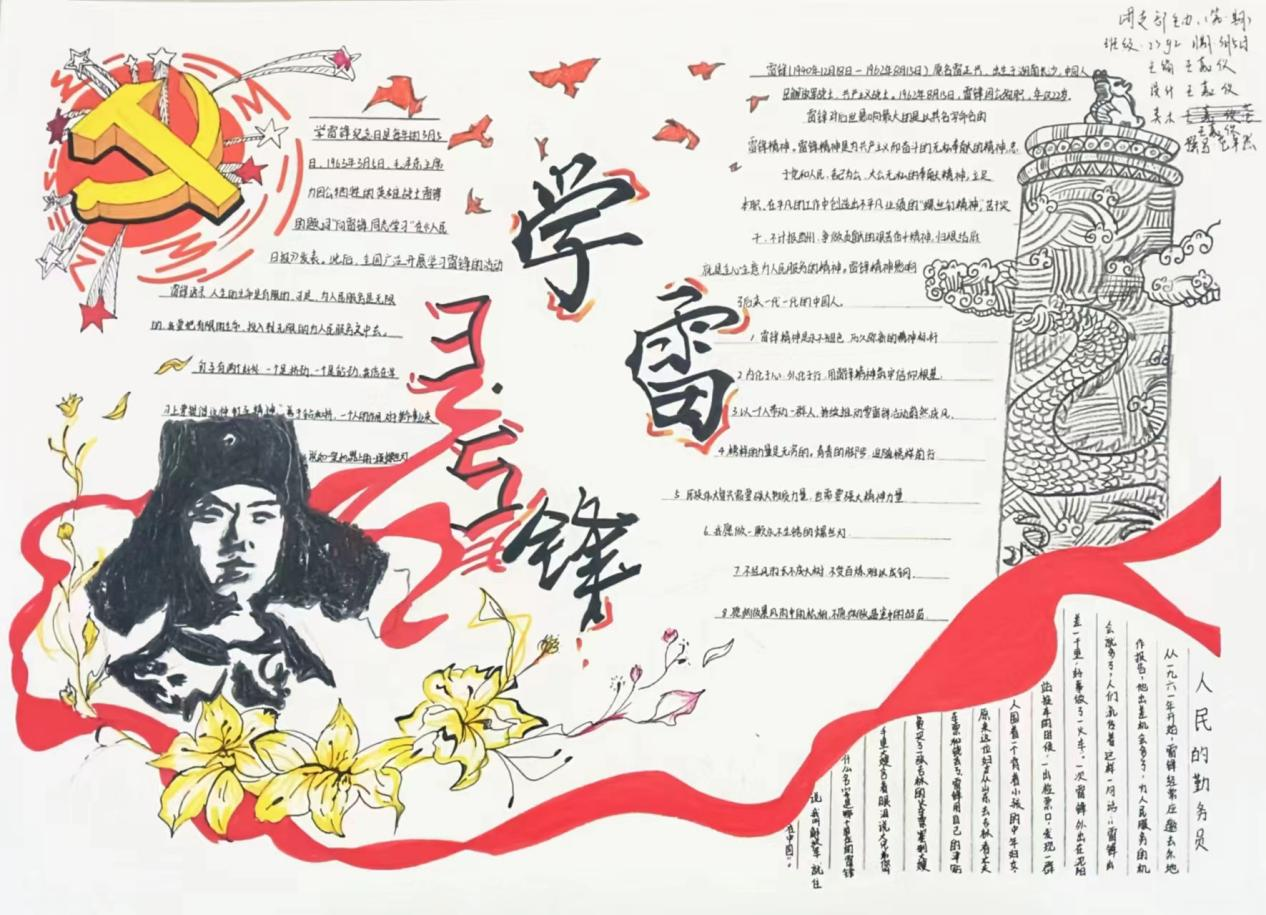 学雷锋
3.5
学雷锋纪念日是每年的3月5
日。1963年3月5日,毛泽东主席
为因公牺牲的英雄战士雷锋
的题词"向雷锋同志学习"在《人民
日报》发表。此后,全国广泛开展学习雷锋的活动
雷锋语录:人生的生命是有限的,可是,为人民服务是无限
的,我要把有限的生命,投入到无限的为人民服务之中去。
钉子有两个好处,一个是挤劲,一个是钻劲,我们在学
习上要提倡这种"钉子精神"
一个人的作用,对于革命事业来
说如一架机器上的一颗螺丝钉
雷锋(1940年12月18日-1962年8月15日)原名雷正兴,出生于湖南长沙,中国人
民解放军战士,共产主义战士。1962年8月15日,雷锋因公殉职,年仅22岁。
雷锋对后世影响最大的是以其名字命名的
雷锋精神。雷锋精神是为共产主义而奋斗的无私奉献的精神,忠
于党和人民、舍己为公、大公无私的奉献精神,立足
本职、在平凡的工作中创造出不平凡业绩的"螺丝钉精神",苦干实
干、不计报酬、争做贡献的艰苦奋斗精神,归根结底
就是全心全意为人民服务的精神。雷锋精神影响
了后来一代一代的中国人。
1.雷锋精神是永不褪色、历久弥新的精神标杆
2.内化于心、外化于行,用雷锋精神筑牢信仰根基
3.以一个人带动一群人,持续推动学雷锋活动蔚然成风。
4.榜样的力量是无穷的。有着的胜号,追随榜样前行
5.民族伟大复兴需要强大物质力量,也需要强大精神力量
6.我愿做一颗永不生锈的螺丝钉
7.不经风雨长不成大树,不受百炼难以成钢
8.愿做暴风雨中的松柏,不愿做温室中的弱苗
团支部主办(第一期)
班级:2392 日期:3月5日
主编 王嘉仪
设计 王嘉仪
美术
王嘉仪
人民的勤务员
从一九六一年开始,雷锋经常应邀去外地
作报告,他出差机会多了,为人民服务的机
会就多了,人们流传着这样一句话:"雷锋出
差一千里,好事做了一火车"。一次雷锋外出在沈阳
站换车的时候,一出检票口,发现一群
人围着一个背着小孩的中年妇女,
原来这位妇女从山东去吉林看丈夫
车票和钱丢了,雷锋用自己的津贴
费买了一张去吉林的火车票塞到大嫂
手里,大嫂含着眼泪说:大兄弟你
叫什么名字,是哪个单位的?雷锋
说:我叫解放军,就住
在中国"。